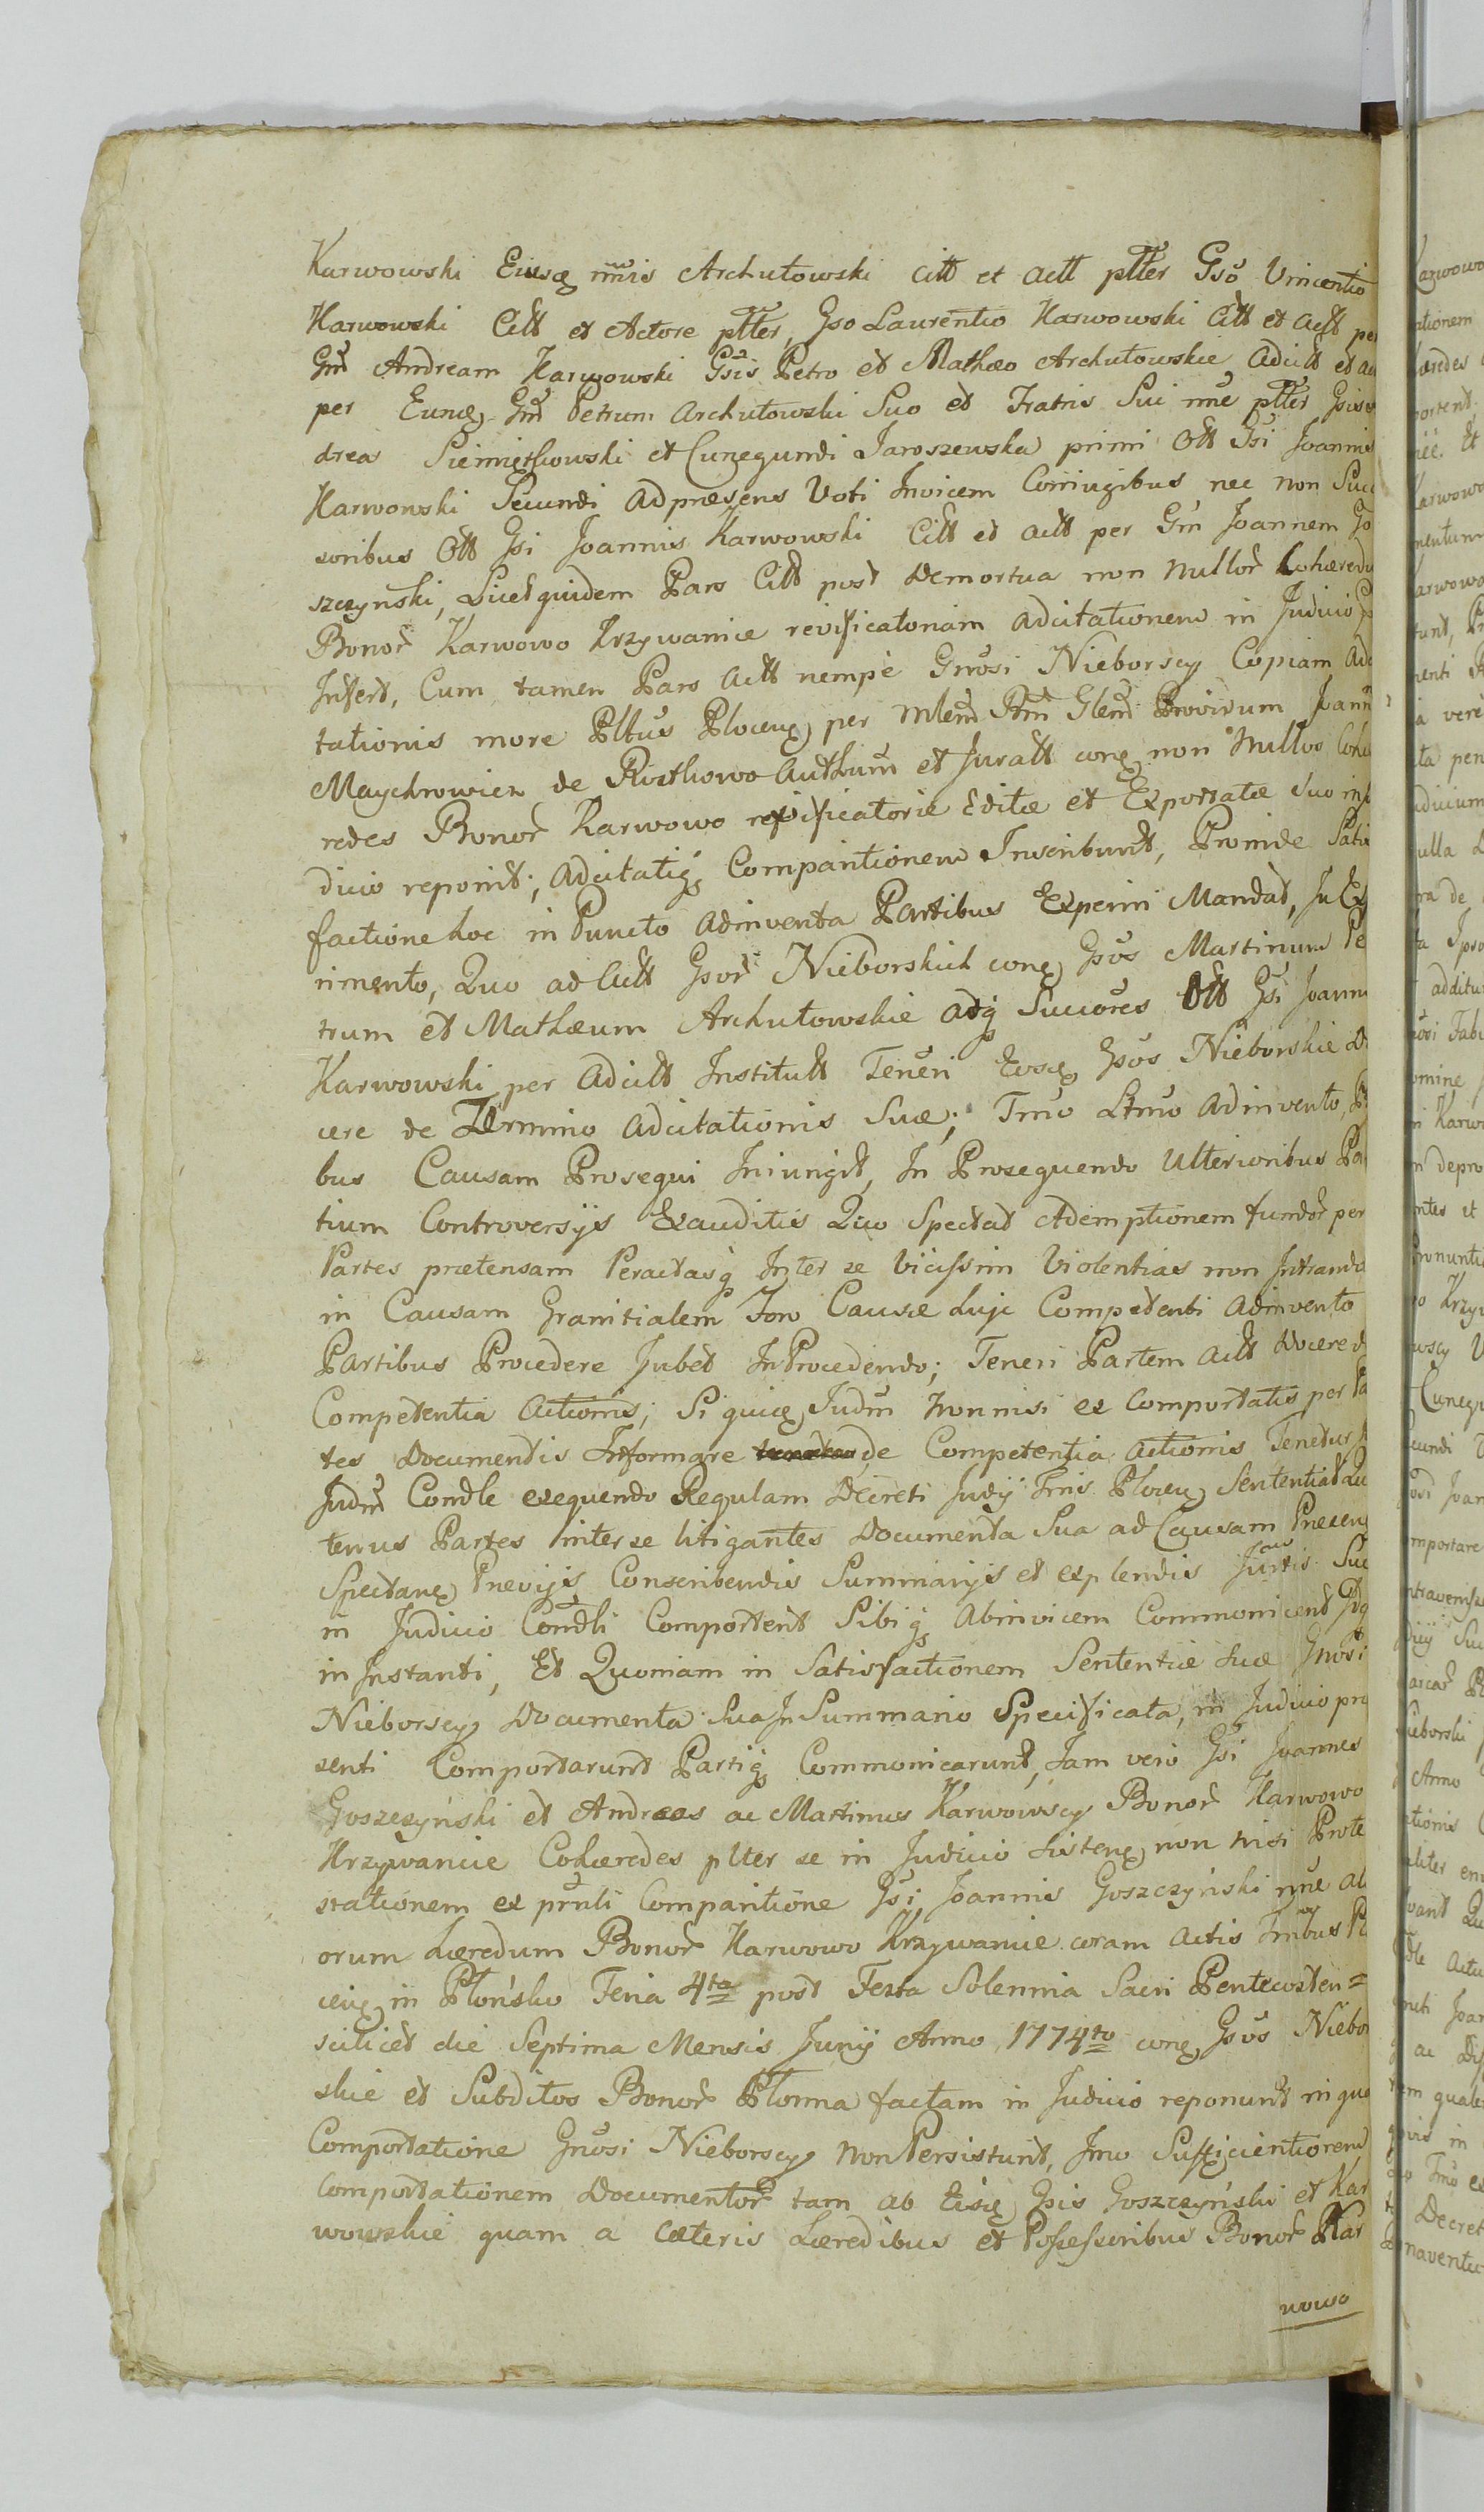 Karwowski Eiusq nnis Archutowski Citt et Actt ptter Gso Vincentio
Karwowski Citt et Actore ptter, Gso Laurentio Karwowski Citt et Actt per
Gm Andream Karwowski Gsis Petro et Mathæo Archutowskie Adcitt et ac
per Eunq Gm Petrum Archutowski Suo et Fratris Sui nne ptter Gsis
drea Siemiętkowski et Cunegundi Jaroszewska primi Ott Gsi Joannis
Karwowski Secundi ad præsens Voti Invicem Coniugibus nec non Suc
soribus Ott Gsi Joannis Karwowski Citt et Actt per Gm Joannem Go
szczynski, Licet quidem Pars Citt post Demortua non nullor Cohæredu
Bonor Karwowo Krzywanice reivificatoriam Adcitationem in Judicio
Infert, Cum tamen Pars Actt nempè Gnosi Nieborscy Copiam Adc
tationis more Pltus Plocenq per Mlem Rm Glem Provisum Joann
Maychrowicz de Rostkowo Authum et Juratt conq non nullos Cohæ
redes Bonor Karwowo revificatorie Editæ et Exportatæ Suo in
dicio reponit; Adcitatiq Comparitionem Inscribunt, Proinde Satis
factione hoc in Puncto Adinventa Partibus Experiri Mandat, In Ex
rimento, Quo ad Citt Gsor Nieborskich conq Gsos Martinum Pe
trum et Mathæum Archutowskie adq Succores Ott Gsi Joann
Karwowski per Adcitt Institutt Teneri Eosq Gsos Nieborskie Do
cere de Termino Adcitationis Suæ; Tmo Ltmo Adinvento,
bus Causam Prosequi Iniungit, In Prosequendo Ulterioribus Par
tium Controversijs Exauditis Quo Spectat Ademptionem fundor per
Partes prætensam Peractasq Inter se Vicissim Violentias non Intrando
in Causam Granitialem Foro Causæ hujc Competenti Adinvento
Partibus Procedere Jubet In Procedendo; Teneri Partem Actt Docere d
Competentia Actionis; Si quicq Judm Nonnisi ex Comportatis per Pa
tes Documentis Informare de Competentia Actionis Tenetur
Judm Condle exequendo Regulam Decreti Judij Tris Plocen Sententiat Qu
tenus Partes inter se litigantes Documenta Sua ad Causam Præsen
Spectanq Prævijs Conscribendis Summarijs et explendis Jurtis Su
in Judicio Condli Comportent Sibiq Abinvicem Commonicent Idq
in Instanti, Et Quoniam in Satisfactionem Sententiæ Suæ Gnosi
Nieborscy Documenta Sua In Summario Specificata, in Judicio præ
senti Comportarunt Partiq Commonicarunt, Jam vero Gsi Joannes
Goszczyński et Andreas ac Martinus Karwowscy Bonor Karwowo
Krzywanice Cohæredes plter se in Judicio Sistenq non nisi Prote
stationem ex prnti Comparitione Gsi Joannis Goszczyński nne ali
orum hæredum Bonor Karwowo Krzywanice coram Actis Tribus Plo
ceiq in Płońsko Feria 4ta post Festa Solennia Sacri Pentecosten=
scilicet die Septima Mensis Junij Anno 1774to conq Gsos Niebor
skie et Subditos Bonor Płonna factam in Judicio reponunt in qua
Comportatione Gnosi Nieborscy Non Persistunt, Imo Sufficientiorem
Comportationem Documentor tam ab Eisq Gsis Goszczyński et Kar
wowskie quam a Cæteris hæredibus et Possessoribus Bonor Kar
wowo